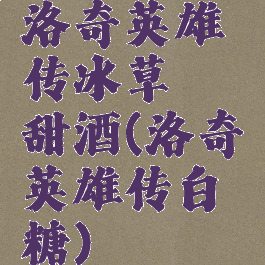 洛奇英雄
传冰草
甜酒(洛奇
英雄传白
糖)